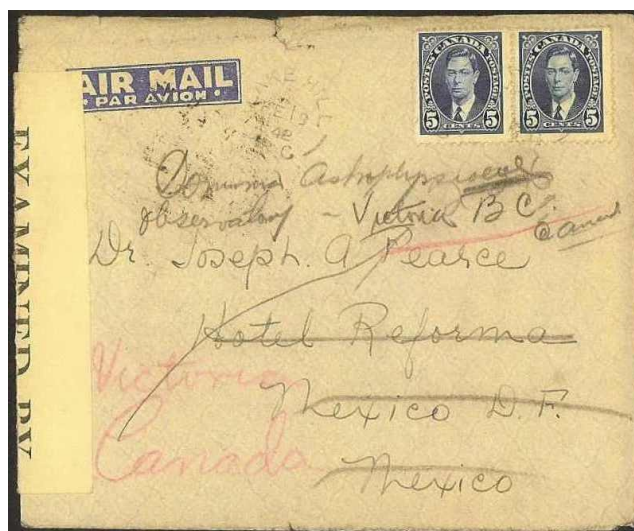 AIR MAIL
PAR AVION
POSTES CANADA POSTAGE
5 CENTS 5
POSTES CANADA POSTAGE
5 CENTS 5
19
42
EXAMINED BY
Dominion Astrophysical
Observatory - Victoria B C.
Canada
Dr. Joseph. A Pearce
Hotel Reforma
Mexico D.F.
Mexico
Victoria
Canada